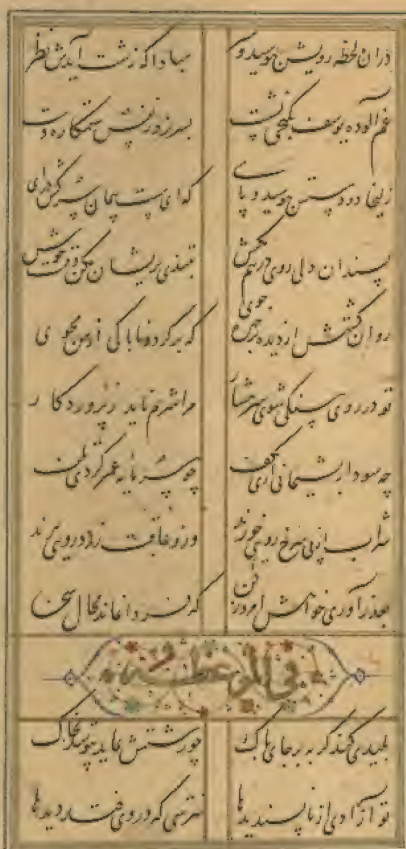 دران لحظه رویش بپوشید و سر مبادا که زشت آیدش در نظر
غم آلوده یوسف بکنجی نشست بسر بر ز نفس ستمکاره دست
زلیخا دو دستش ببوسید و پای که ای سست پیمان سرکش درای
بسندان دلی روی درهم مکش بتندی پریشان مکن وقت خوش
روان گشتش از دیده بر چهره جوی که برگرد و ناپاکی از من مجوی
تو در روی سنگی شوی شرمسار مرا شرم ناید ز پروردکار
چه سود از پشیمانی آری بکف چو سرمایه عمر کردی تلف
شراب از پی سرخ رویی خورند وزو عاقبت زرد رویی برند
بعذر آوری خواهش امروز کن که فردا نماند مجال سخن
فی الموعظة
پلیدی کند گربه بر جای پاک چو زشتش نماید بپوشد بخاک
تو آزادی از ناپسندیدها نترسی که در وی فتد دیدها